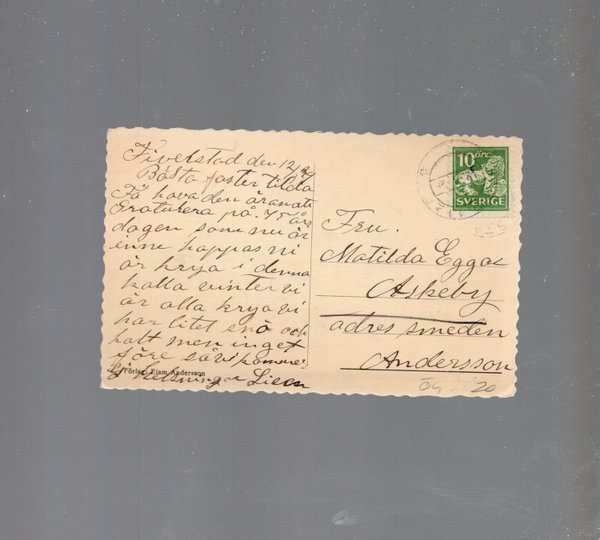 Fivelstad den 12/
Bästa faster Tilda
Få hava den äranatt
Gratulera på 75 års
dagen som nu är
inne hoppas ni
är krya i denna
kalla vinter vi
är alla krya vi
har litet snö och
halt men inget
före så vi kommer
Hälsningar
Förlag: Elam Andersson
10 ÖRE
SVERIGE
Fru.
Matilda Egger
Askeby
adres smeden
Andersson
20